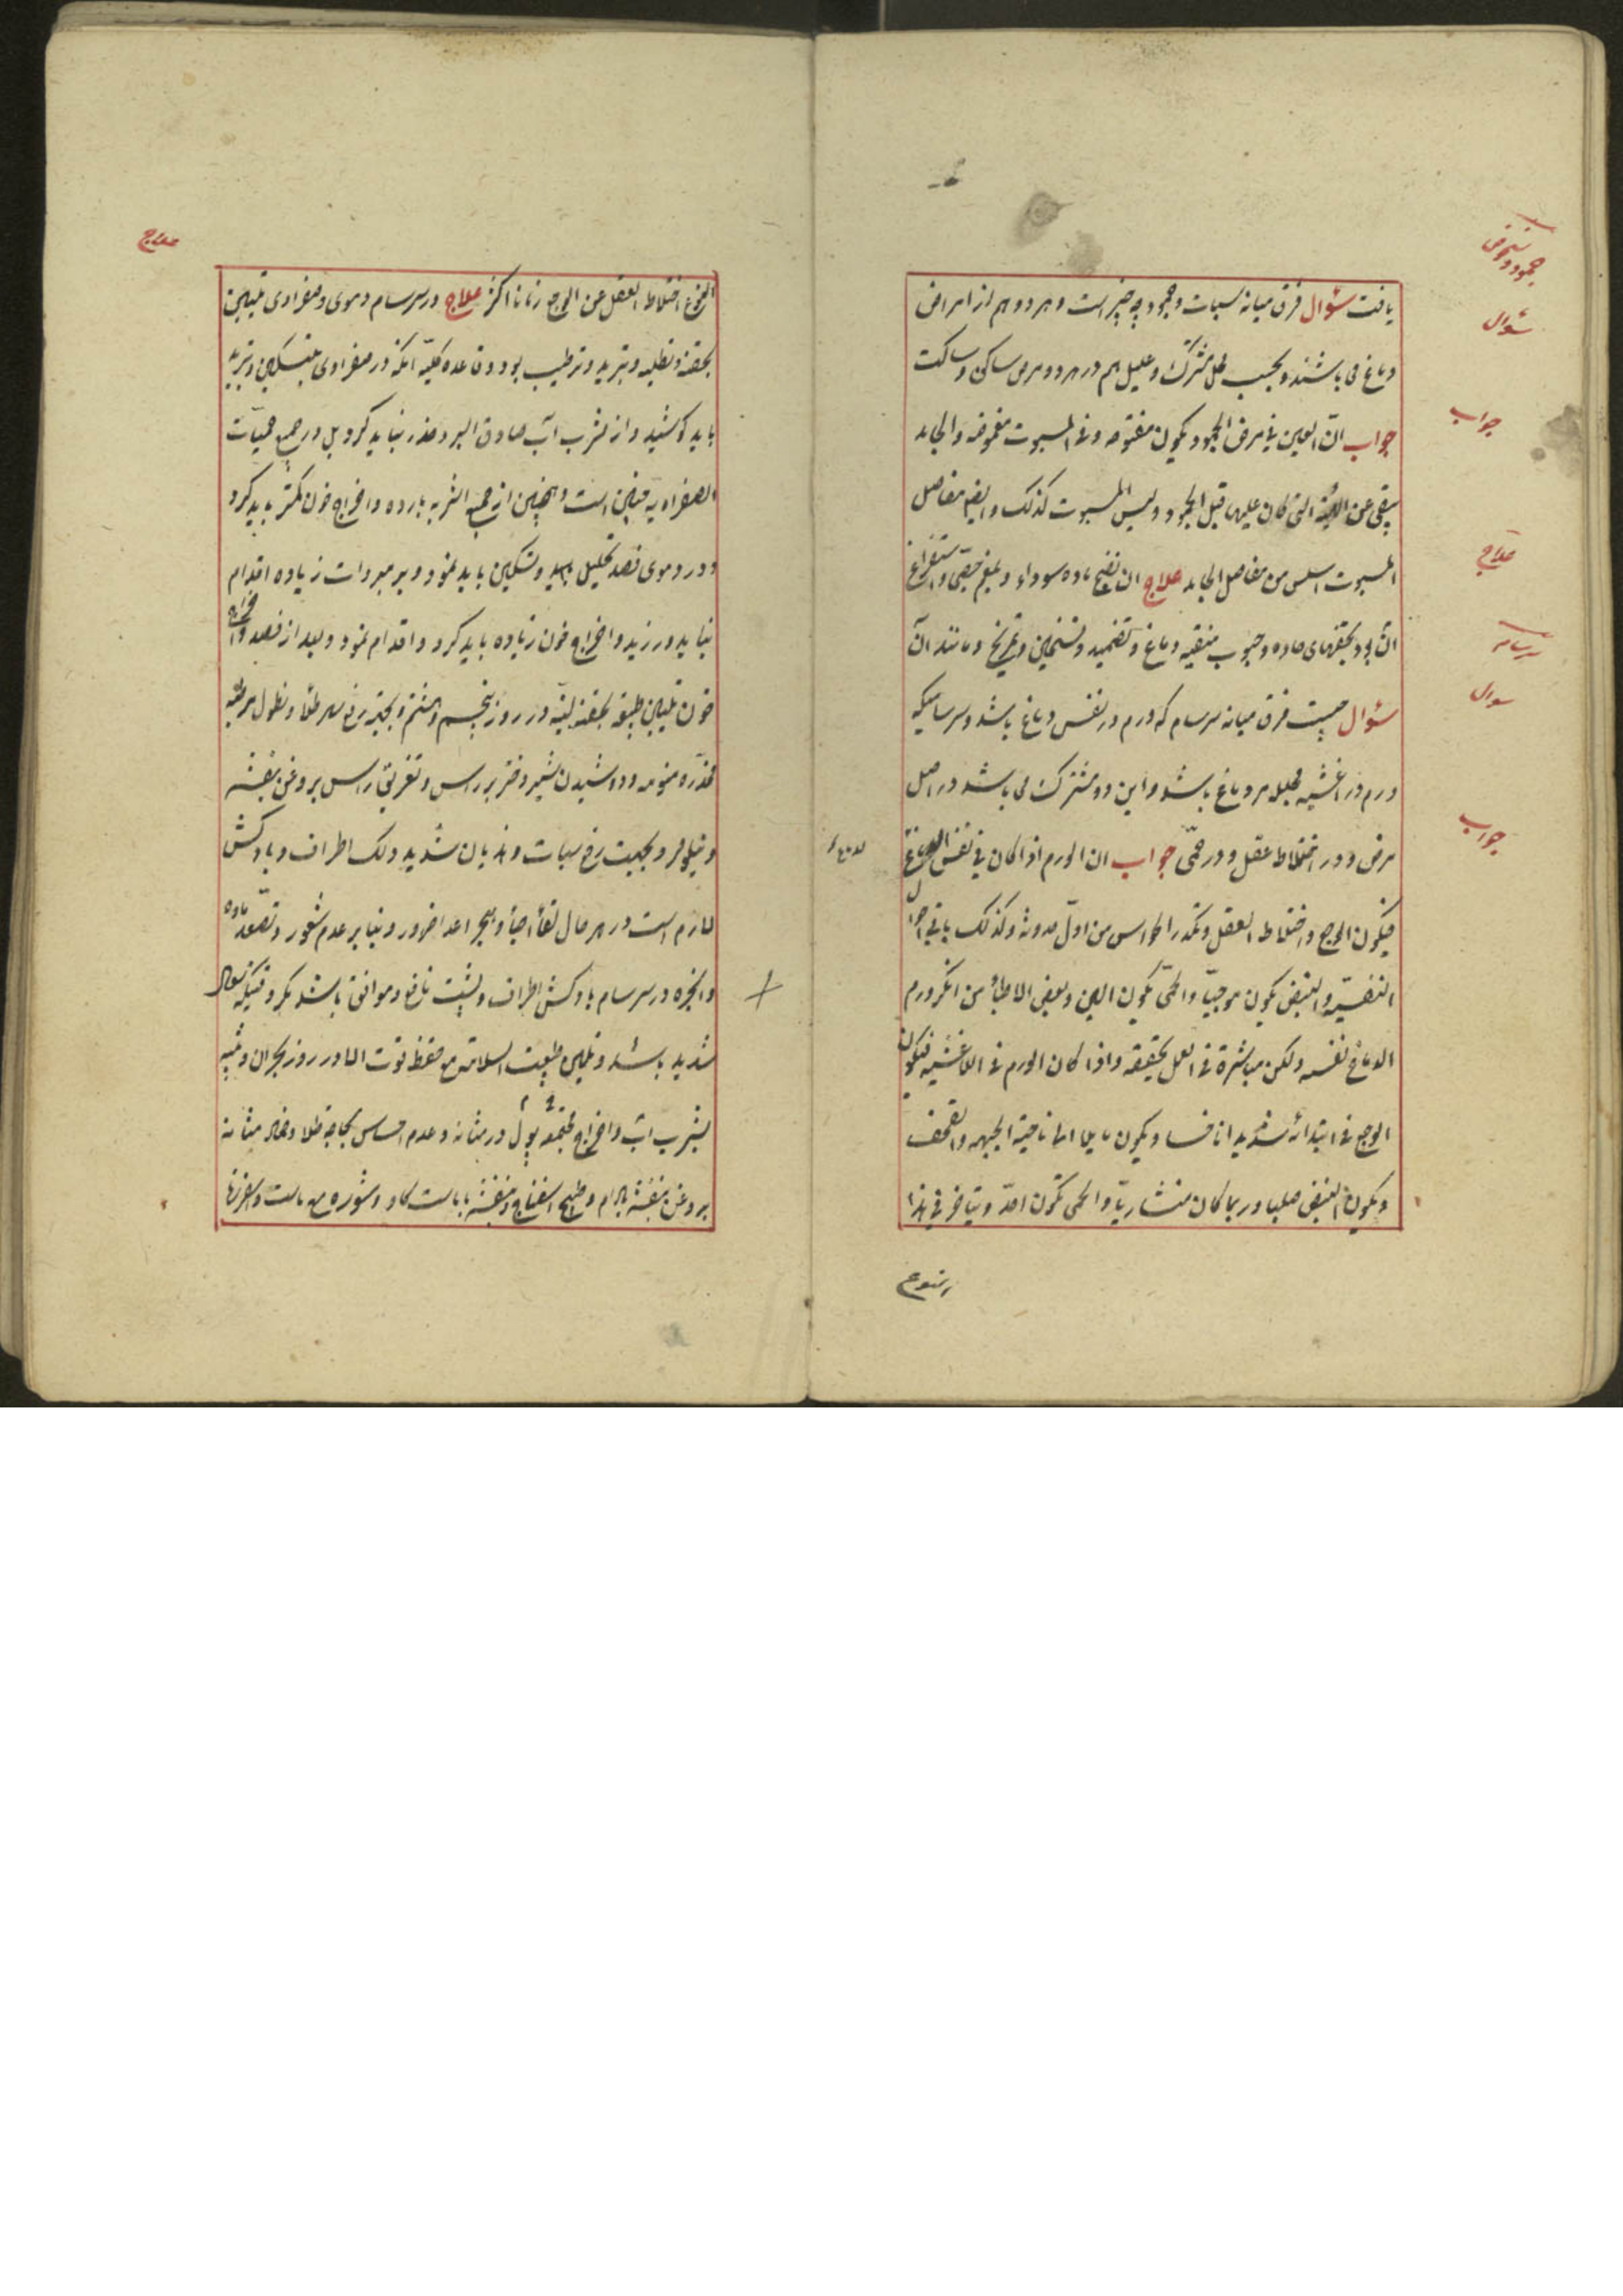 یافت سؤال فرق میانه سبات و جمود چه چیز است و هر دو هم از امراض
دماغ می باشند و بحسب محل مشترک و علیل هم در هر دو مرض ساکن و ساکت
جواب ان العین فی مرض الجمود یکون مفتوحه و فی المسبوت مغموضه و الجامد
یبقی عن الهیئة التی کان علیها قبل الجمود و لیس المسبوت کذلک و ایضا مفاصل
المسبوت اسلس من مفاصل الجامد علاج ان نضج ماده سوداء و بلغم حقیقی و استفراغ
آن بود بحقنهای حاده و حبوب منقیه دماغ و تضمید و تسخین و تمریخ و مانند آن
سؤال چیست فرق میانه سرسام که ورم در نفس دماغ باشد و سرسامیکه
ورم در اغشیه محلله بر دماغ باشد و این دو مشترک می باشد در اصل
مرض و در اختلاط عقل و در حمّی جواب ان الورم اذا کان فی نفس الدماغ
فیکون الوجع و اختلاط العقل و تکدر الحواس من اوّل حدوثه و کذلک باقی احوال
النفسیّه و النبض یکون موجیّا و الحمّی یکون الین و بعض الاطباء من انکر ورم
الدماغ نفسه ولکن مباشرة فی العمل بحقیقه و اذا کان الورم فی الاغشیه فیکون
الوجع فی ابتدائه شدیدا ناخسا و یکون مایلا الی ناحیة الجبهه و القحف
و یکون النبض صلبا و ربما کان منشاریّا و الحمی تکون احدّ و یتاخر فی هذا
جمود و شخوص
سؤال
جواب
علاج
سرسام
سؤال
جواب
النوع اختلاط العقل عن الوجع زمانا اکثر علاج در سرسام دموی و صفراوی تلیین
بحقنه و تطلیه و تبرید و ترطیب بود و قاعده کلیّه آنکه در صفراوی بتسکین و تبرید
باید کوشید و از شرب آب صادق البرد حذر نباید کرد بل در جمیع حمیّات
الصفراویه چنین است و همچنین از جمیع اشربه بارده و اخراج خون کمتر باید کرد
و در دموی قصد تحلیل و تسکین باید نمود و بر مبردات زیاده اقدام
نباید ورزید و اخراج خون زیاده باید کرد و اقدام نمود و بعد از فصد و اخراج
خون تلیین طبیعة بحقنه لینه در روز پنجم و هشتم و بجهة رفع سهر طلا و نطول مرطبه
مخدّره منومه و دوشیدن شیر دختر بر راس و تغریق راس بروغن بنفشه
و نیلوفر و بجهت رفع سبات و هذیان شدید دلک اطراف و بادکش
لازم است در هر حال
و ابخره در سرسام بادکش اطراف و پشت نافع و موافق باشد مگر وقتیکه سعال
شدید باشد و تلیین طبیعت السلامتی مع حفظ قوت الا در روز بحران و تنبیه
بشرب آب و اخراج مجتمعه بول در مثانه و عدم احساس بحاجة طلا و ضماد مثانه
بروغن بنفشه بادام و طبیخ اسفناج و بنفشه با ماست گاو و شوره من ماست
علاج